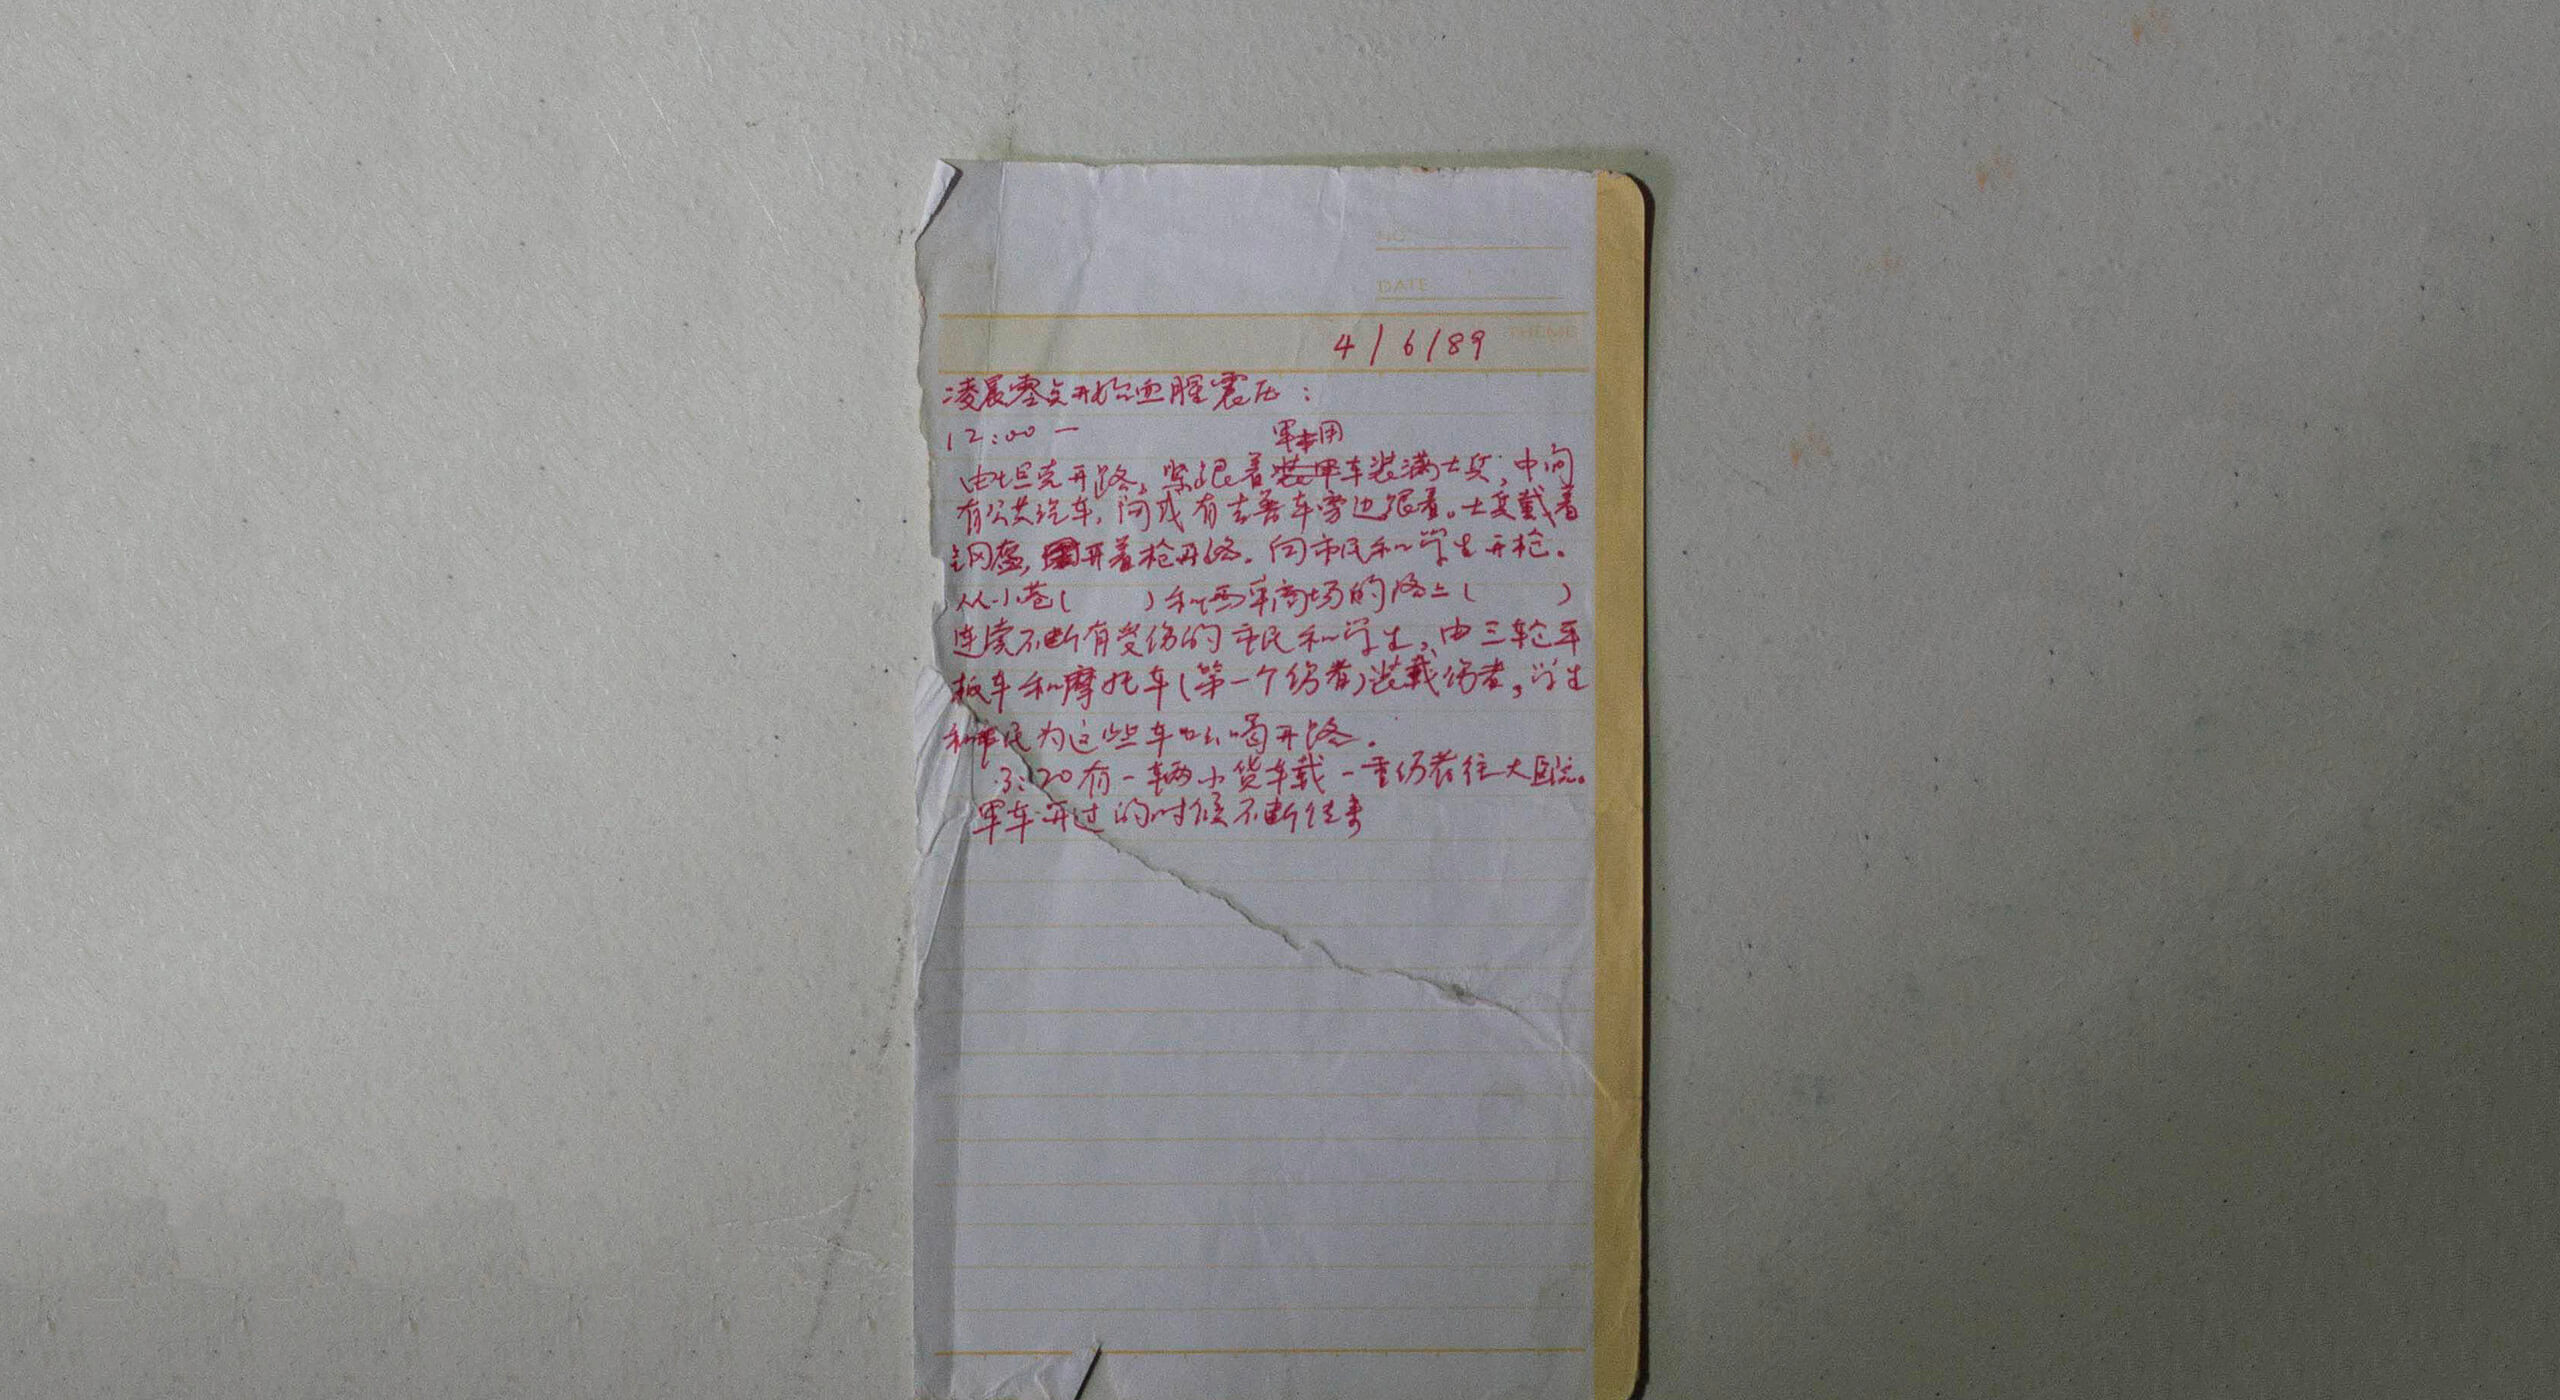 NO
DATE
THEME
4/6/89
凌晨零点开始血腥震压：
12:00 —
军用
由坦克开路，紧跟着装甲车装满士兵；中间
有公共汽车，间或有吉普车旁边跟着。士兵戴着
钢盔，开着枪开路。向市民和学生开枪。
从小巷（ ）和西单商场的路上（ ）
连续不断有受伤的市民和学生，由三轮平
板车和摩托车（第一个伤者）装载伤者，学生
和市民为这些车吆喝开路。
3:20有一辆小货车载一重伤者往大医院。
军车开过的时候不断往来